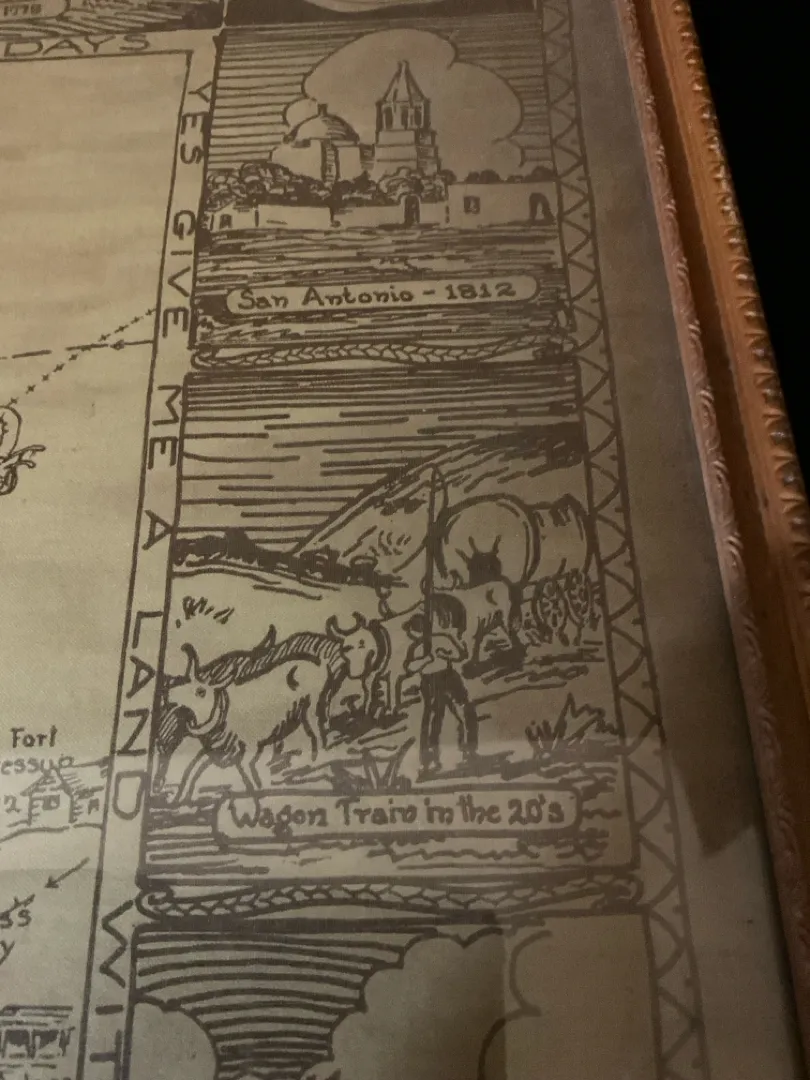 1778
DAYS
YES GIVE ME A LAND WIT
San Antonio - 1812
Wagon Train in the 20's
Fort
essup
2
ss
y